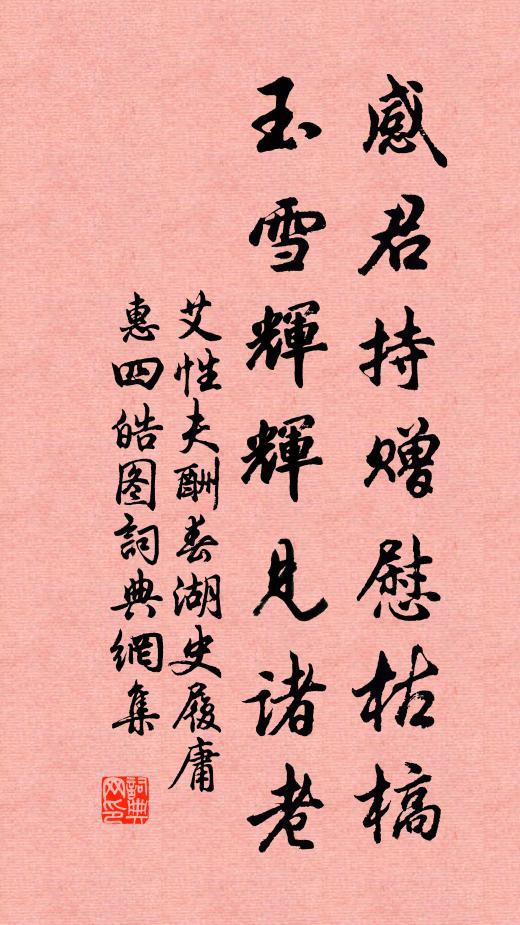 感君持赠慰枯槁
玉雪輝輝見諸老
艾性夫酬春湖史履庸
惠四皓图詞典網集
詞典
网印